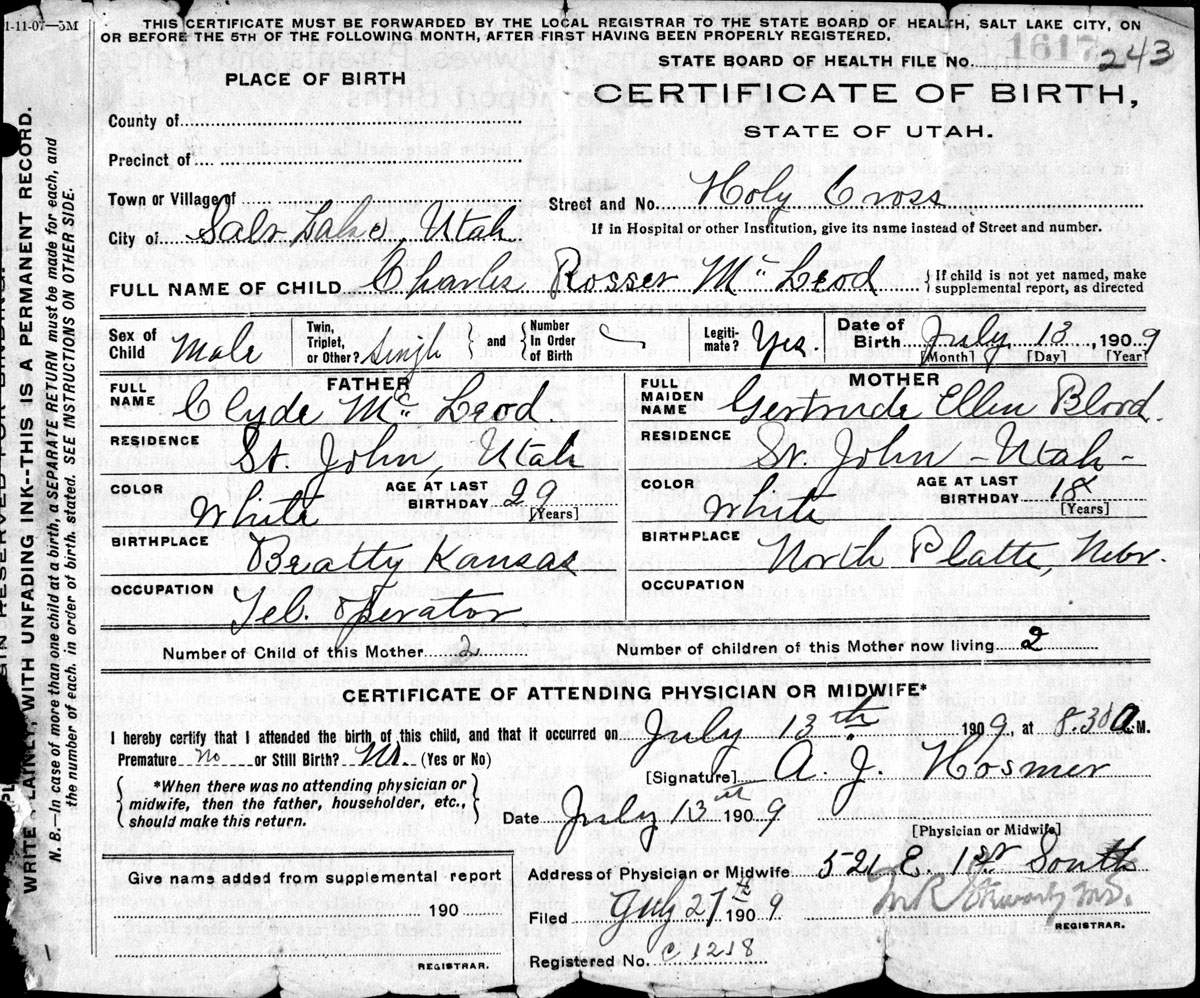 1-11-07—5M
THIS CERTIFICATE MUST BE FORWARDED BY THE LOCAL REGISTRAR TO THE STATE BOARD OF HEALTH, SALT LAKE CITY, ON
OR BEFORE THE 5TH OF THE FOLLOWING MONTH, AFTER FIRST HAVING BEEN PROPERLY REGISTERED.
1617
STATE BOARD OF HEALTH FILE No. 243
PLACE OF BIRTH
CERTIFICATE OF BIRTH,
STATE OF UTAH.
County of
Precinct of
Town or Village of
Street and No. Holy Cross
City of Salt Lake, Utah
If in Hospital or other Institution, give its name instead of Street and number.
FULL NAME OF CHILD Charles Rosser McLeod
{If child is not yet named, make
supplemental report, as directed
Sex of Child Male
Twin, Triplet, or Other? Single
and
Number In Order of Birth
Legiti-mate? Yes.
Date of Birth July 13, 1909
[Month] [Day] [Year]
FATHER
FULL NAME Clyde McLeod.
RESIDENCE St. John, Utah
COLOR White
AGE AT LAST BIRTHDAY 29 [Years]
BIRTHPLACE Beatty Kansas
OCCUPATION Tel. Operator
MOTHER
FULL MAIDEN NAME Gertrude Ellen Blood.
RESIDENCE St. John - Utah -
COLOR White
AGE AT LAST BIRTHDAY 18 [Years]
BIRTHPLACE North Platte, Nebr.
OCCUPATION
Number of Child of this Mother 2
Number of children of this Mother now living 2
CERTIFICATE OF ATTENDING PHYSICIAN OR MIDWIFE*
I hereby certify that I attended the birth of this child, and that it occurred on July 13th 1909, at 8.30 A.M.
Premature No or Still Birth? No. (Yes or No)
[Signature] A. J. Hosmer
*When there was no attending physician or
midwife, then the father, householder, etc.,
should make this return.
Date July 13th 1909
[Physician or Midwife]
Address of Physician or Midwife 521 E. 1st South
Give name added from supplemental report
190
REGISTRAR.
Filed July 27th 1909
REGISTRAR.
Registered No. C 1218
WRITE PLAINLY WITH UNFADING INK--THIS IS A PERMANENT RECORD.
N. B.—In case of more than one child at a birth, a SEPARATE RETURN must be made for each, and
the number of each, in order of birth, stated. SEE INSTRUCTIONS ON OTHER SIDE.